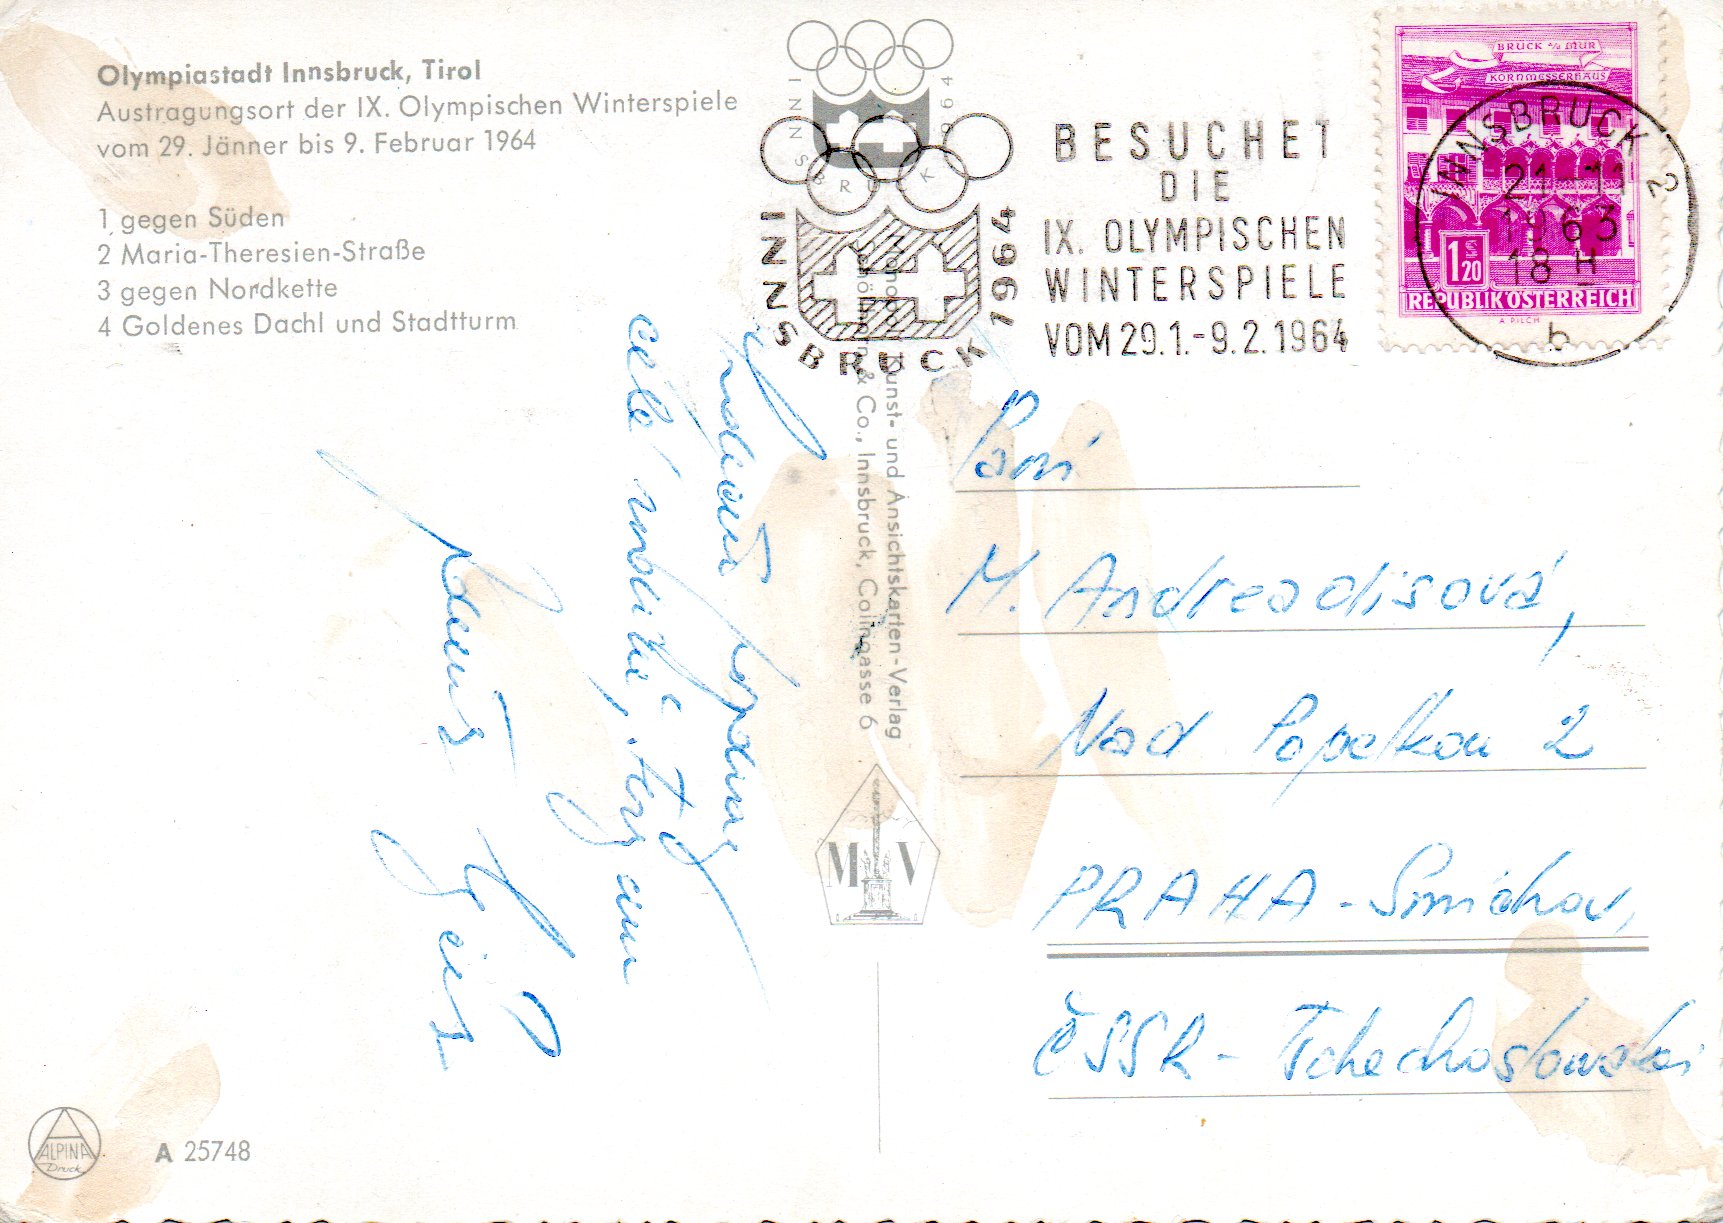 Olympiastadt Innsbruck, Tirol
Austragungsort der IX. Olympischen Winterspiele
vom 29. Jänner bis 9. Februar 1964
1 gegen Süden
2 Maria-Theresien-Straße
3 gegen Nordkette
4 Goldenes Dachl und Stadtturm
INNSBRUCK 1964
INNSBRUCK 1964
BESUCHET
DIE
IX. OLYMPISCHEN
WINTERSPIELE
VOM 29.1.-9.2.1964
BRUCK a/d MUR
KORNMESSERHAUS
INNSBRUCK 2
21-11
1963
18 H
b
1 S 20
REPUBLIK ÖSTERREICH
A. PILCH
Kunst- und Ansichtskarten-Verlag
& Co., Innsbruck, Colingasse 6
M V
Srdečný pozdrav
celé rodině
Paní
M. Andreadisová,
Nad Popelkou 2
PRAHA - Smíchov,
ČSSR - Tschechoslowakei
ALPINA
Druck
A 25748